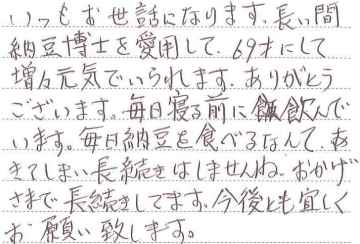 いつもお世話になります、長い間
納豆博士を愛用して、69才にして
増々元気でいられます、ありがとう
ございます。毎日寝る前に飲んで
います。毎日納豆を食べるなんて、あ
きてしまい長続きはしませんね、おかげ
さまで長続きしてます、今後とも宜しく
お願い致します。